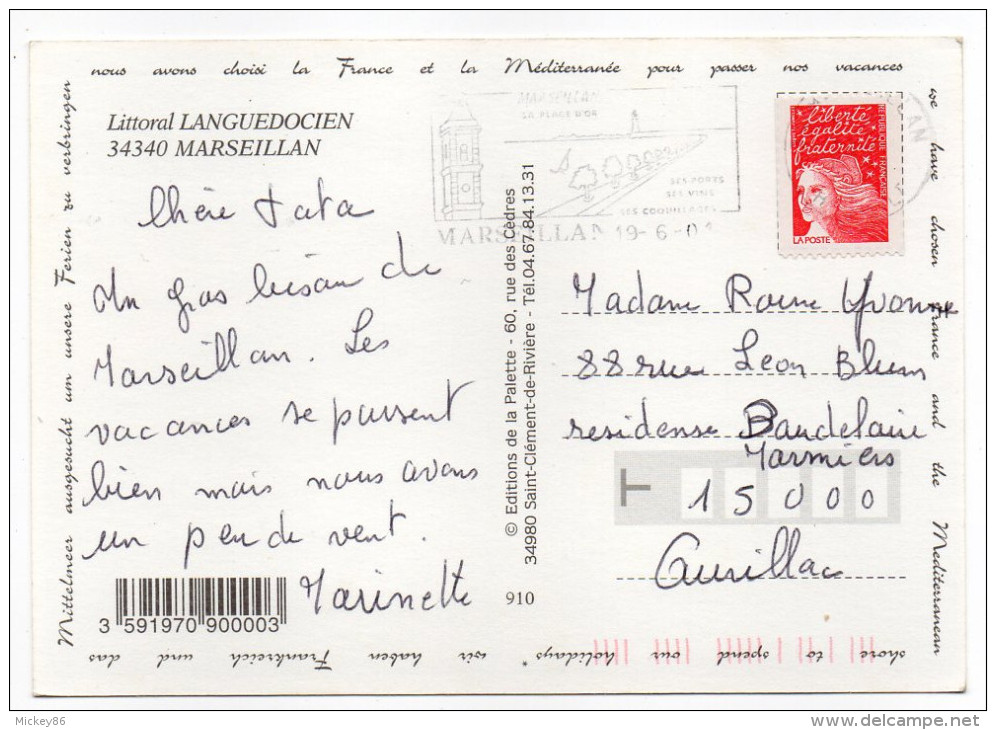 nous avons choisi la France et la Méditerranée pour passer nos vacances
we have chosen France and the Mediterranean
shore to spend our holidays" wir haben Frankreich und das
Mittelmeer ausgesucht um unsere Ferien zu verbringen
Littoral LANGUEDOCIEN
34340 MARSEILLAN
Chère tata
Un gros bisou de
Marseillan. Les
vacances se passent
bien mais nous avons
un peu de vent.
Marinette
3 591970 900003
© Editions de la Palette - 60, rue des Cèdres
34980 Saint-Clément-de-Rivière - Tél.04.67.84.13.31
910
MARSEILLAN
LA PLAGE D'OR
SES PORTS
SES VINS
SES COQUILLAGES
MARSEILLAN 19-6-01
liberté
égalité
fraternité
REPUBLIQUE FRANCAISE
LA POSTE
Madame Yvonne
88 rue Leon Blum
residense Baudelaire
Marmiers
T 15000
Aurillac
Mickey86
delcampe.net